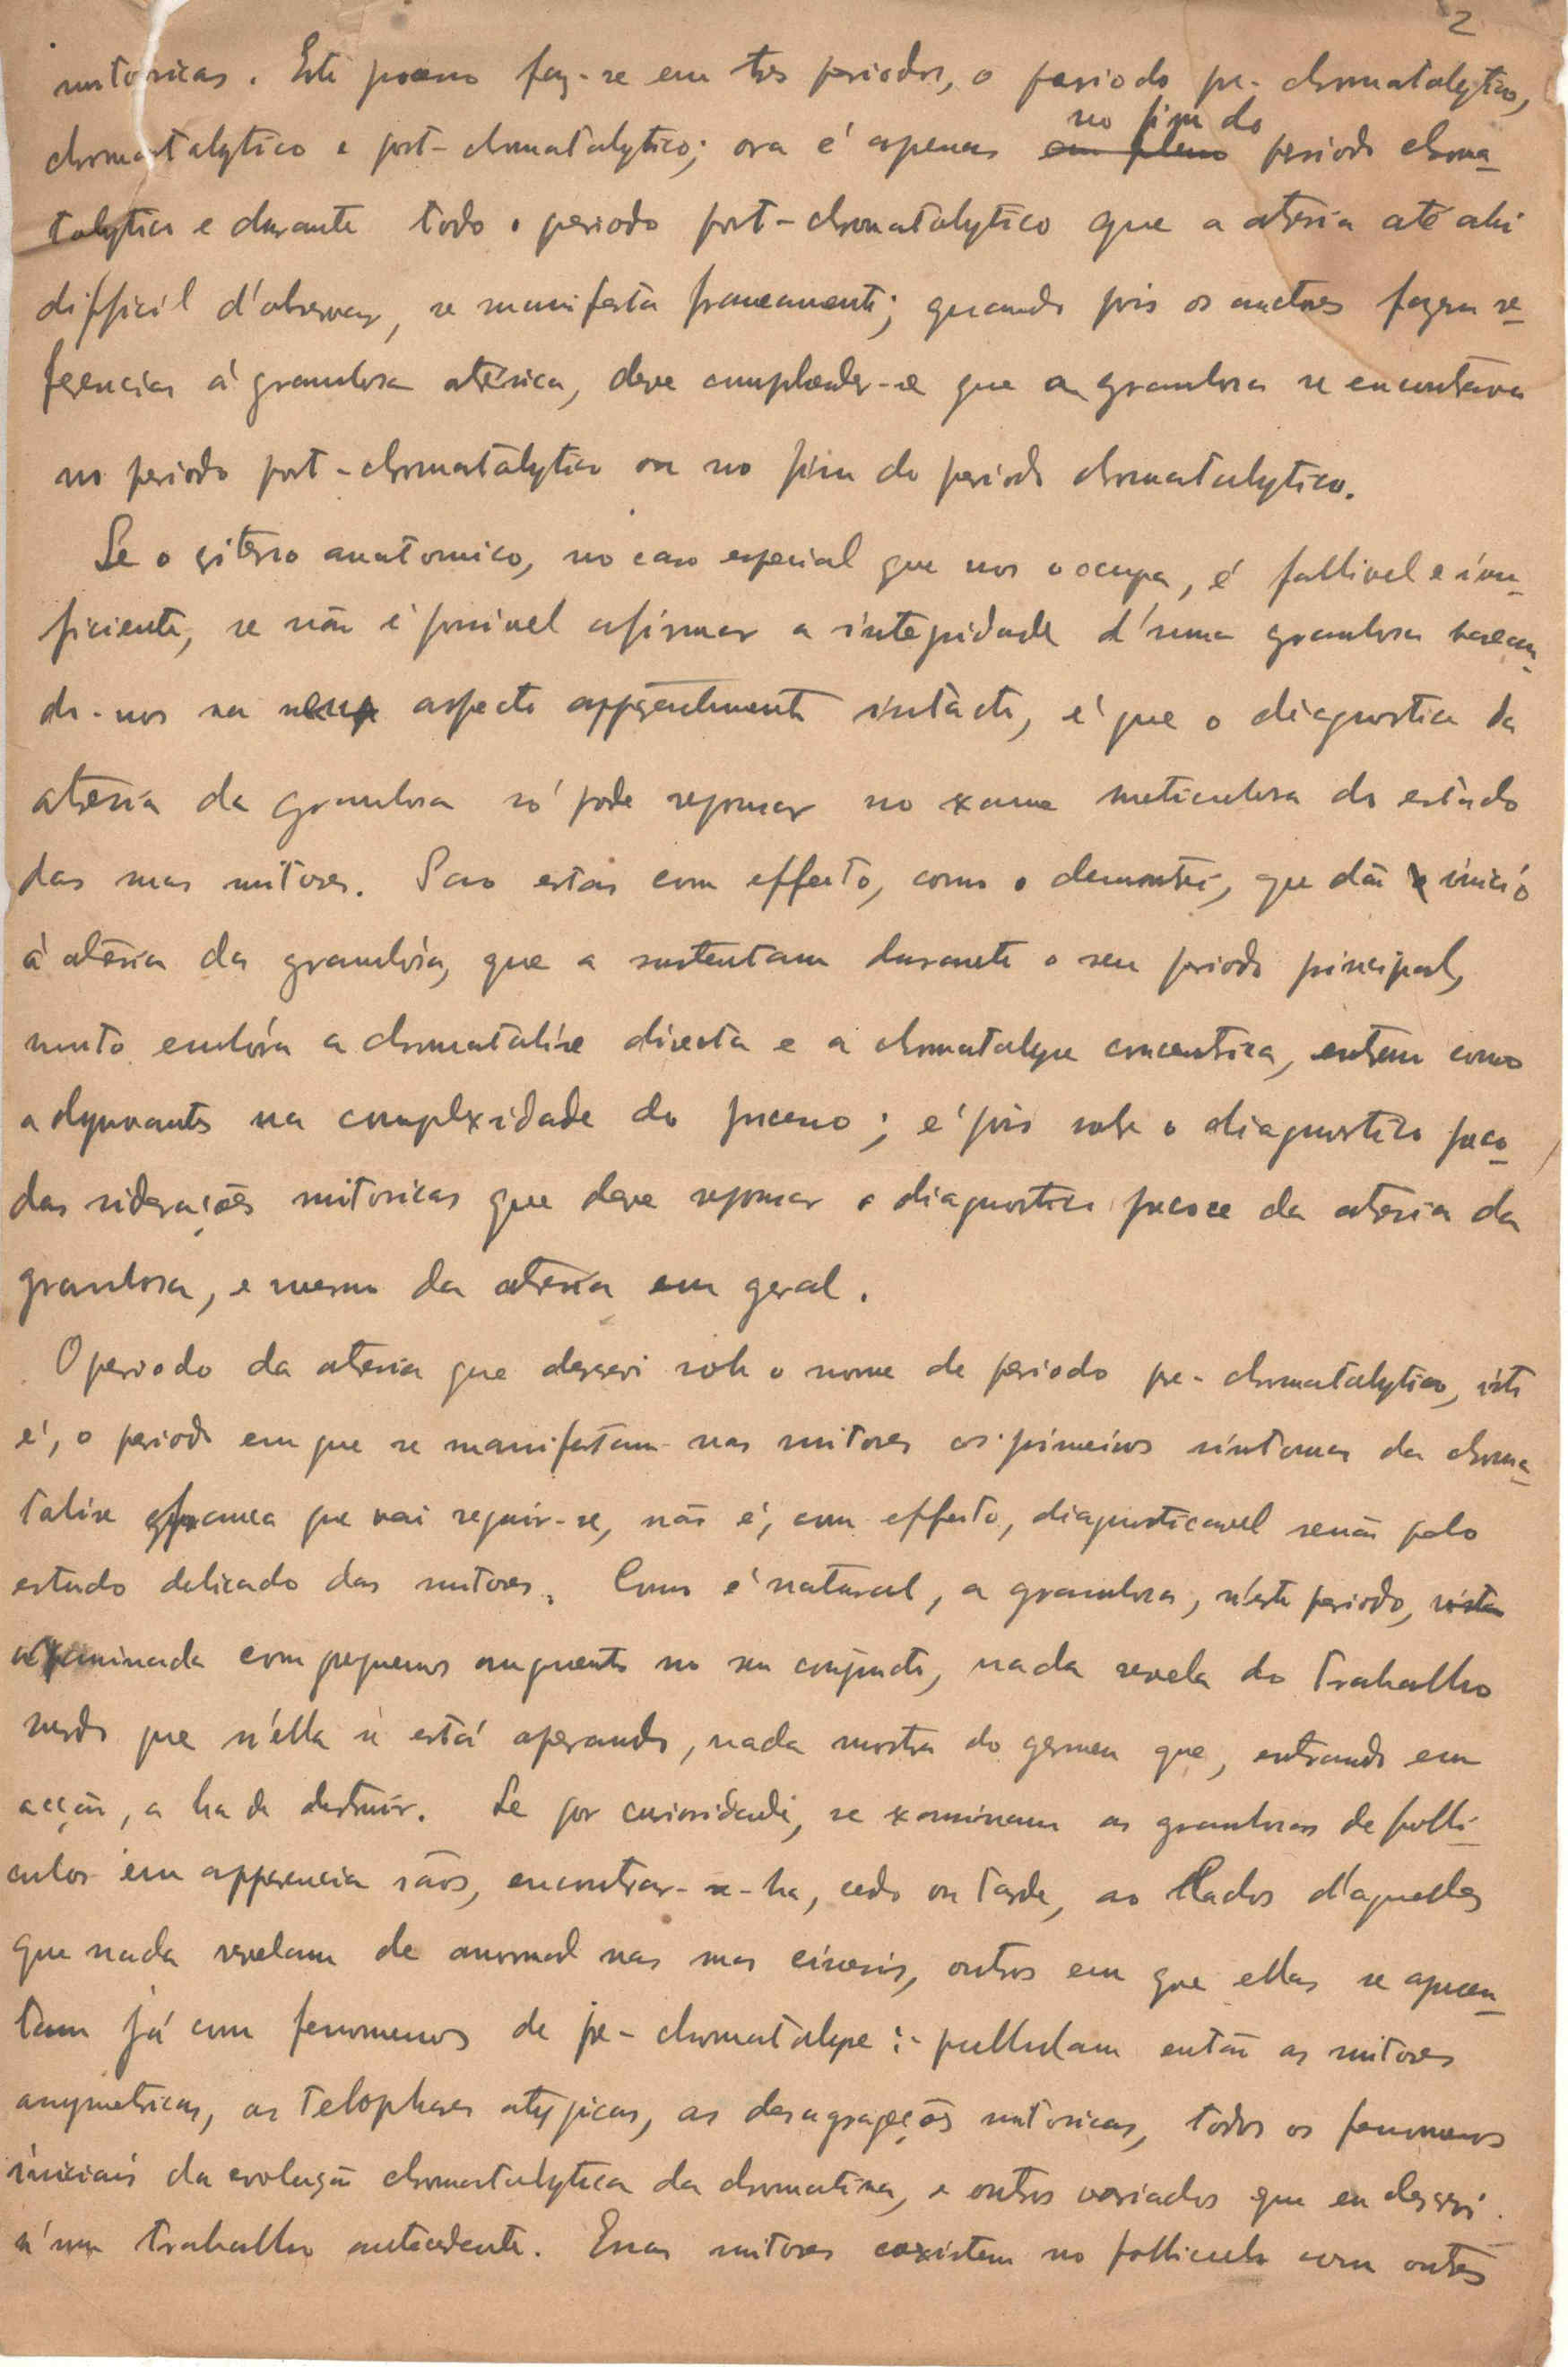 2
mitosicas. Este processo faz-se em tres periodos, o periodo pre-chromatolytico,
chromatolytico e post-chromatolytico; ora é apenas em pleno no fim do periodo chroma-
tolytico e durante todo o periodo post-chromatolytico que a atresia até ahi
difficil d'observar, se manifesta francamente; quando pois os auctores fazem re-
ferencias á granulosa atresica, deve comprehender-se que a granulosa se encontrava
no periodo post-chromatolytico ou no fim do periodo chromatolytico.
Se o criterio anatomico, no caso especial que nos occupa, é fallivel e insu-
ficiente, se não é possivel afirmar a integridade d'uma granulosa basean-
do-nos no seu aspecto apparentemente intacto, é que o diagnostico da
atresia da granulosa só pode repousar no exame meticuloso do estado
das suas mitoses. Sao estas com effeito, como o demonstrei, que dão inicio
á atresia da granulosa, que a sustentam durante o seu periodo principal,
muito embóra a chromatolise directa e a chromatolyse concentrica, entrem como
adjuvantes na complexidade do processo; é pois sobre o diagnostico preco-
das siderações mitosicas que deve repousar o diagnostico precoce da atresia da
granulosa, e mesmo da atresia em geral.
O periodo da atresia que descrevi sob o nome de periodo pre-chromatolytico, isto
é, o periodo em que se manifestam nas mitoses os primeiros sintomas da chroma-
tolise franca que vai seguir-se, não é, com effeito, diagnosticavel senão pelo
estudo delicado das mitoses. Como é natural, a granulosa, n'este periodo, vista
examinada com pequenos augmentos no seu conjuncto, nada revela do trabalho
surdo que n'ella se está operando, nada mostra do germen que, entrando em
acção, a ha de destruir. Se por curiosidade, se examinam as granulosas de folli-
culos em apparencia sãos, encontrar-se-ha, cedo ou tarde, ao lados d'aquelles
que nada revelam de anormal nas suas cinesis, outros em que ellas se apresen-
tam já com fenomenos de pre-chromatolyse:- pullulam então as mitoses
asymetricas, as telophases atypicas, as desagregações mitosicas, todos os fenomenos
iniciais da evolução chromatolytica da chromatina, e outros variados que eu descrevi
n'um trabalho antecedente. Essas mitoses coexistem no folliculo com outras